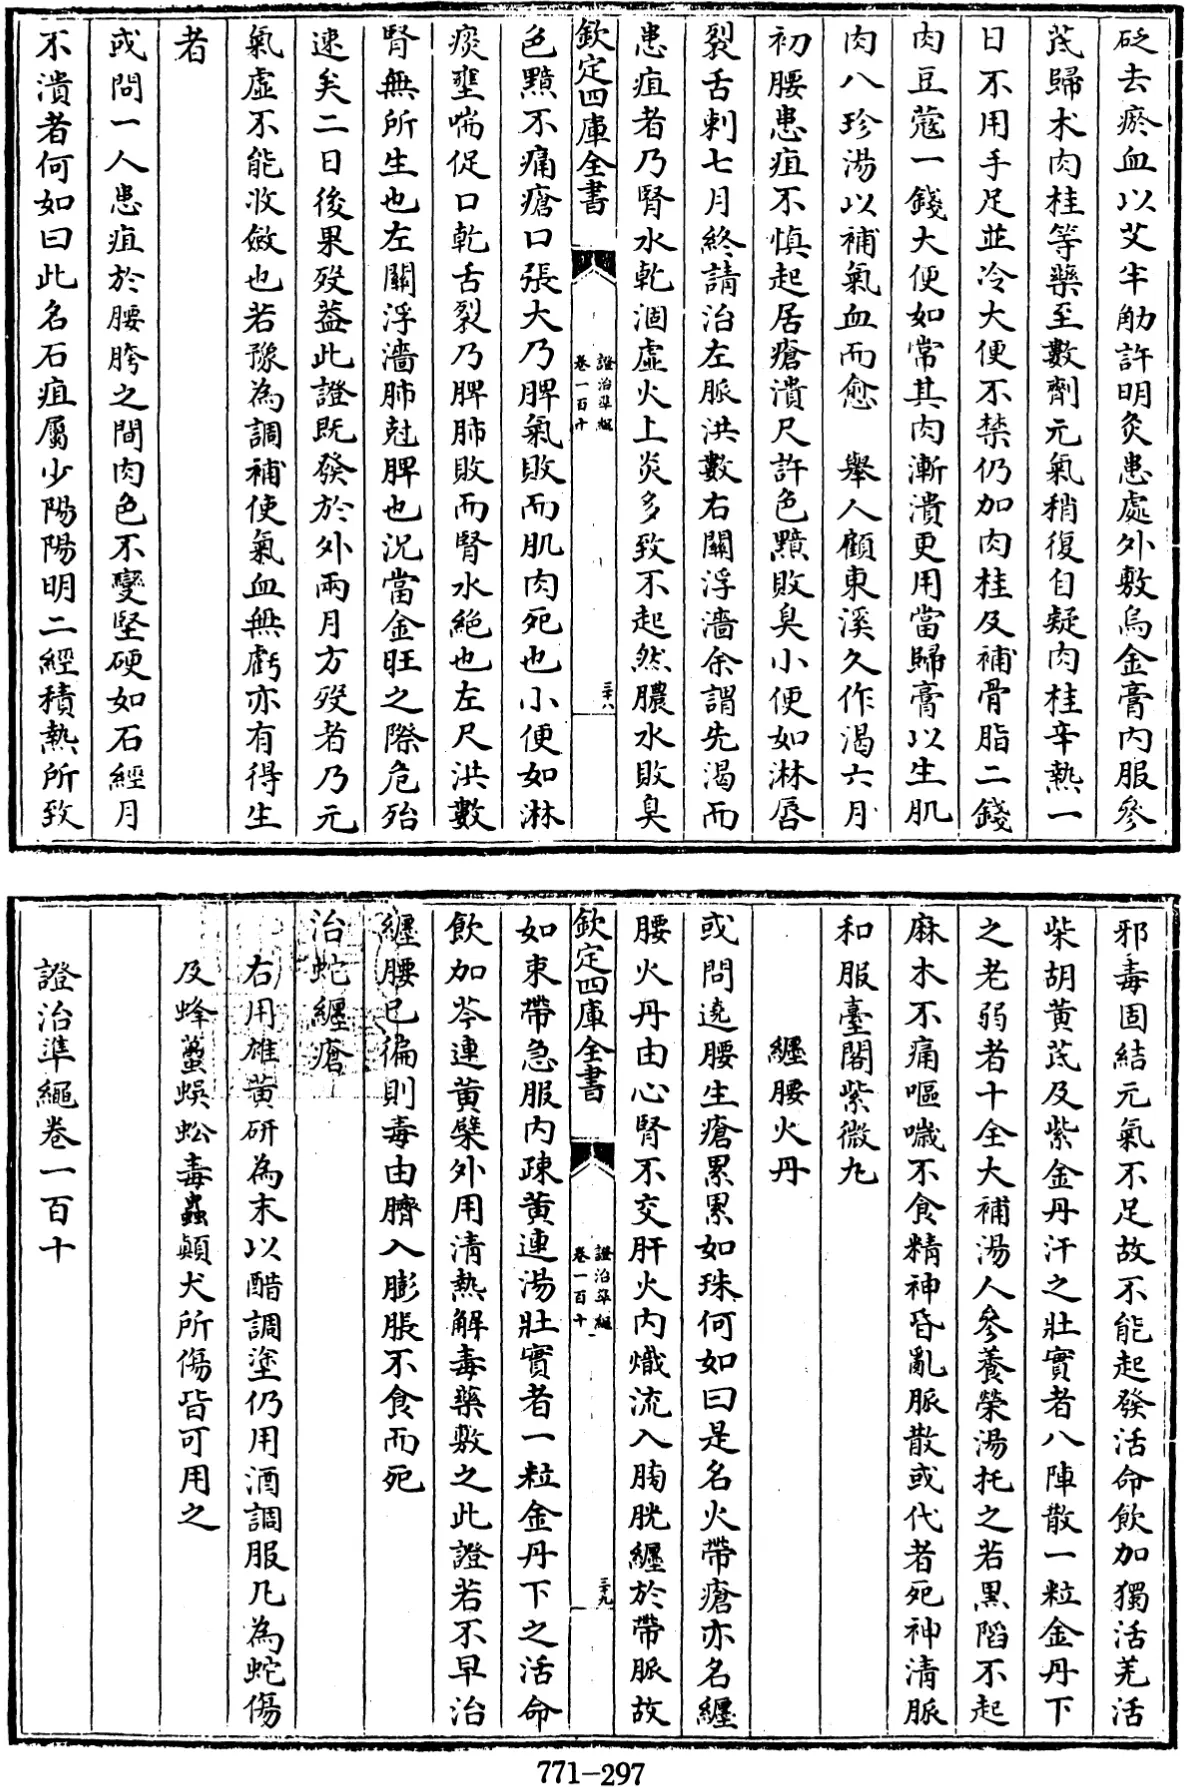 砭去瘀血以艾半觔許明灸患處外敷烏金膏内服參
芪歸术肉桂等藥至數劑元氣稍復自疑肉桂辛熱一
日不用手足並冷大便不禁仍加肉桂及補骨脂二錢
肉豆蔻一錢大便如常其肉漸潰更用當歸膏以生肌
肉八珍湯以補氣血而愈　舉人顧東溪久作渴六月
初腰患疽不慎起居瘡潰尺許色黯敗臭小便如淋唇
裂舌刺七月終請治左脈洪數右關浮濇余謂先渴而
患疽者乃腎水乾涸虚火上炎多致不起然膿水敗臭
欽定四庫全書
證治準繩
卷一百十
三十八
色黯不痛瘡口張大乃脾氣敗而肌肉死也小便如淋
痰壅喘促口乾舌裂乃脾肺敗而腎水絶也左尺洪數
腎無所生也左關浮濇肺尅脾也况當金旺之際危殆
速矣二日後果殁葢此證既發於外兩月方殁者乃元
氣虚不能收斂也若豫為調補使氣血無虧亦有得生
者
或問一人患疽於腰胯之間肉色不變堅硬如石經月
不潰者何如曰此名石疽屬少陽陽明二經積熱所致
邪毒固結元氣不足故不能起發活命飲加獨活羌活
柴胡黄芪及紫金丹汗之壯實者八陣散一粒金丹下
之老弱者十全大補湯人參養榮湯托之若黒陷不起
麻木不痛嘔噦不食精神昏亂脈散或代者死神清脈
和服臺閣紫微丸
纒腰火丹
或問遶腰生瘡累累如珠何如曰是名火帶瘡亦名纒
腰火丹由心腎不交肝火内熾流入膀胱纒於帶脈故
欽定四庫全書
證治準繩
卷一百十
三十九
如束帶急服内疎黄連湯壯實者一粒金丹下之活命
飲加芩連黄蘗外用清熱解毒藥敷之此證若不早治
纒腰已徧則毒由臍入膨脹不食而死
治蛇纒瘡
右用雄黄研為末以醋調塗仍用酒調服凡為蛇傷
及蜂蠆蜈蚣毒蟲顛犬所傷皆可用之
證治準繩卷一百十
771-297